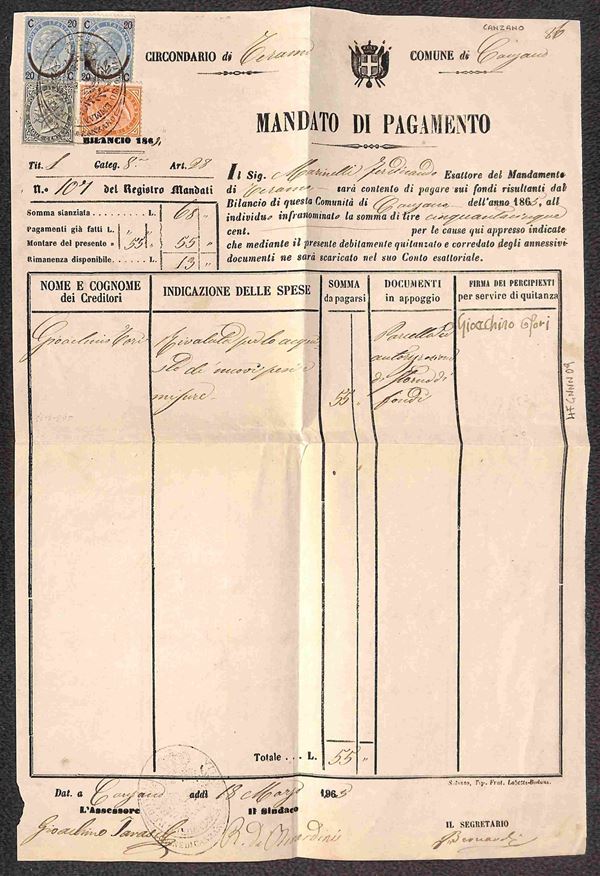 CANZANO
86
20 C C 20
20 C C 20
CIRCONDARIO di Teramo
COMUNE di Canzano
MANDATO DI PAGAMENTO
BILANCIO 186
Tit. 1 Categ. 8ª Art. 28
N.° 107 del Registro Mandati
Somma stanziata L. 68 "
Pagamenti già fatti L. " "
Montare del presente » 55 " 55 "
Rimanenza disponibile L. 13 "
Il Sig. Marinelli Ferdinando Esattore del Mandamento
di Teramo sarà contento di pagare sui fondi risultanti dal
Bilancio di questa Comunità di Canzano dell'anno 1865, all
individuo infranominato la somma di lire cinquantacinque
cent. per le cause qui appresso indicate
che mediante il presente debitamente quitanzato e corredato degli annessivi
documenti ne sarà scaricato nel suo Conto esattoriale.
NOME E COGNOME dei Creditori
INDICAZIONE DELLE SPESE
SOMMA da pagarsi
DOCUMENTI in appoggio
FIRMA DEI PERCIPIENTI per servire di quitanza
Gioacchino Fiori
per lo acqui
sto de' nuovi pesi e
misure
55 "
Parcella ed
di
fondi
Gioacchino Fiori
Totale . . . L. 55 "
Dat. a Canzano addì 18 Marzo 1865
L'Assessore
Il Sindaco
IL SEGRETARIO
Gioacchino
R. de Berardinis